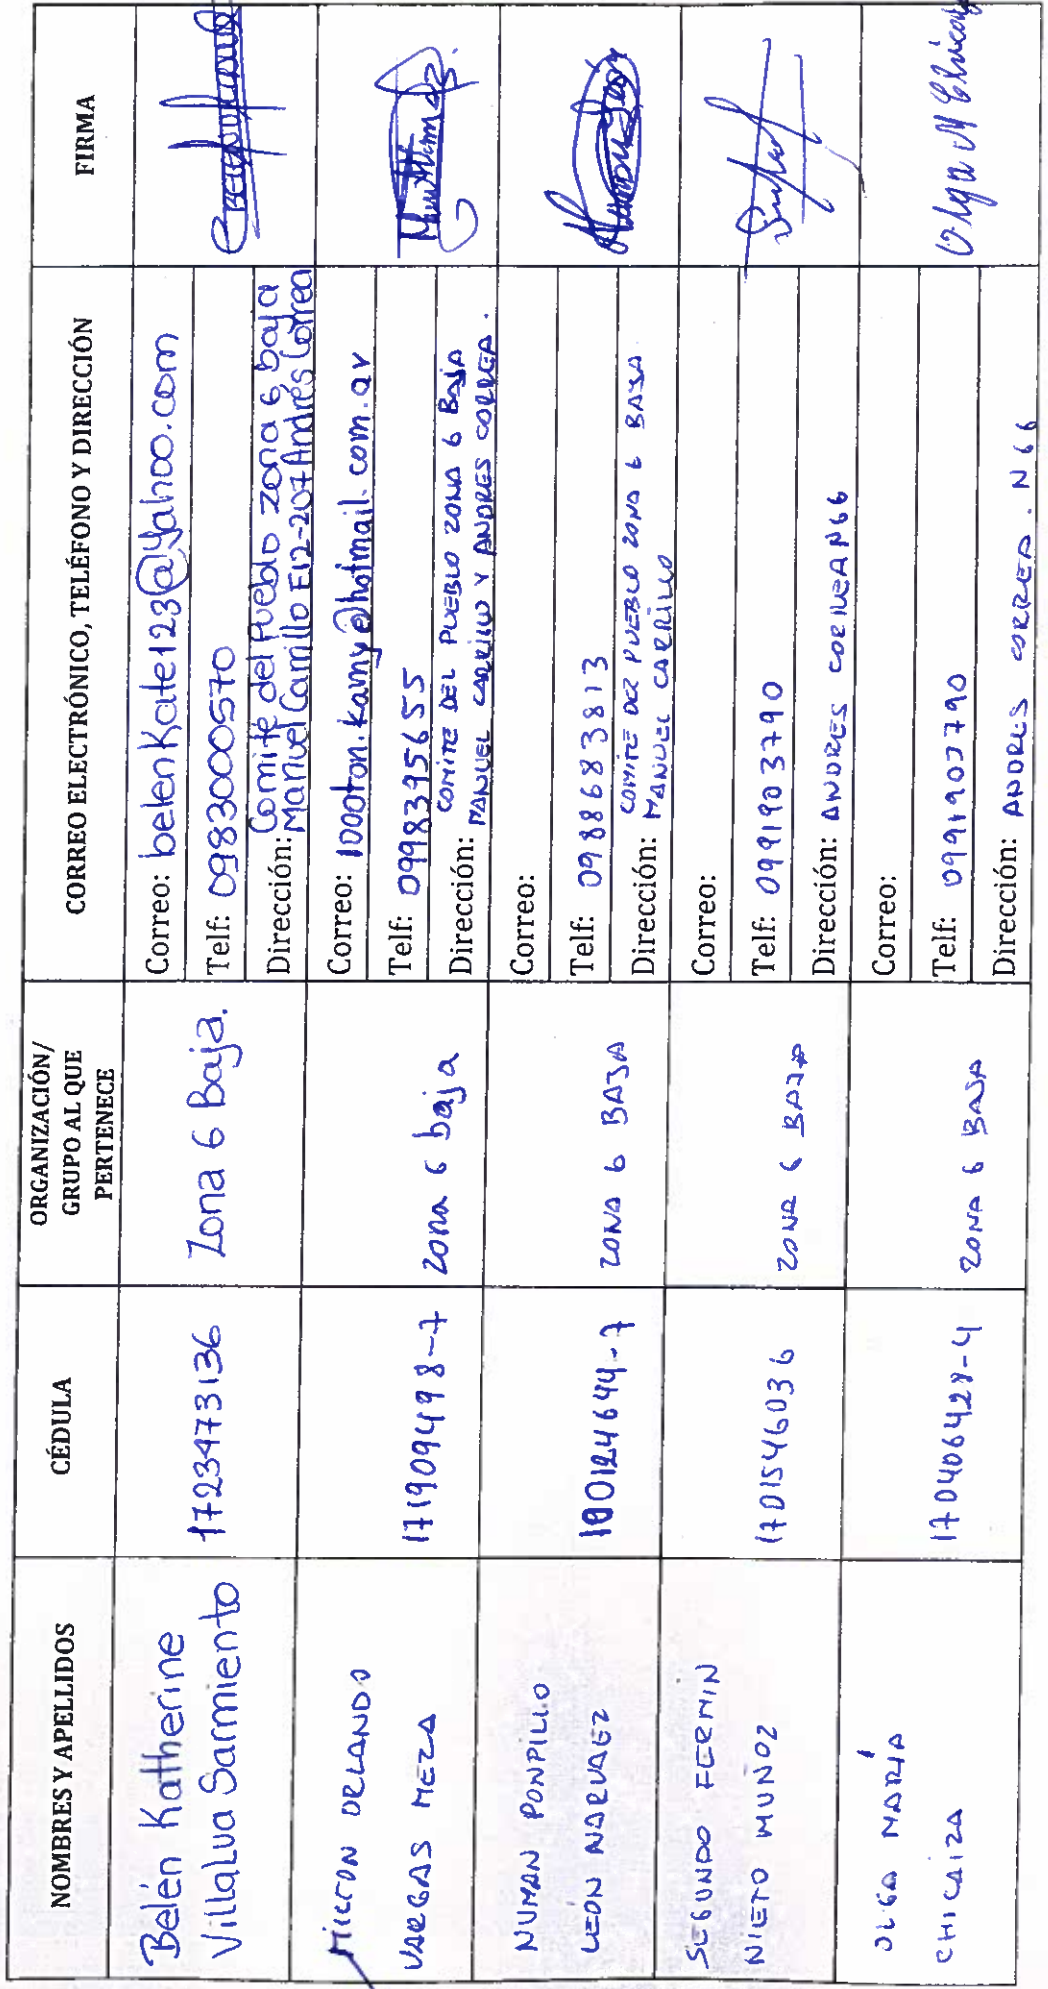 NOMBRES Y APELLIDOS
CÉDULA
ORGANIZACIÓN/
GRUPO AL QUE
PERTENECE
CORREO ELECTRÓNICO, TELÉFONO Y DIRECCIÓN
FIRMA
Belén Katherine
Villalva Sarmiento
1723473136
Zona 6 Baja.
Correo: belenkate123@yahoo.com
Telf: 0983000570
Comité del Pueblo zona 6 baja
Dirección: Manuel Carrillo E12-207 Andrés Correa
ORLANDO
VARGAS MEZA
171909498-7
Zona 6 baja
Correo: 1000ton.kamy@hotmail.com.ar
Telf: 0998395655
COMITE DEL PUEBLO ZONA 6 BAJA
Dirección: MANUEL CARRILLO Y ANDRES CORREA.
NUMAN PONPILIO
LEÓN NARVAEZ
100124644-7
ZONA 6 BAJA
Correo:
Telf: 0988683813
COMITE DEL PUEBLO ZONA 6 BAJA
Dirección: MANUEL CARRILLO
SEGUNDO FERMIN
NIETO MUÑOZ
1701546036
ZONA 6 BAJA
Correo:
Telf: 0991903790
Dirección: ANDRES CORREA N66
OLGA MARÍA
CHICAIZA
170406428-4
ZONA 6 BAJA
Correo:
Telf: 0991903790
Dirección: ANDRES CORREA. N66
Olga M Chicaiza